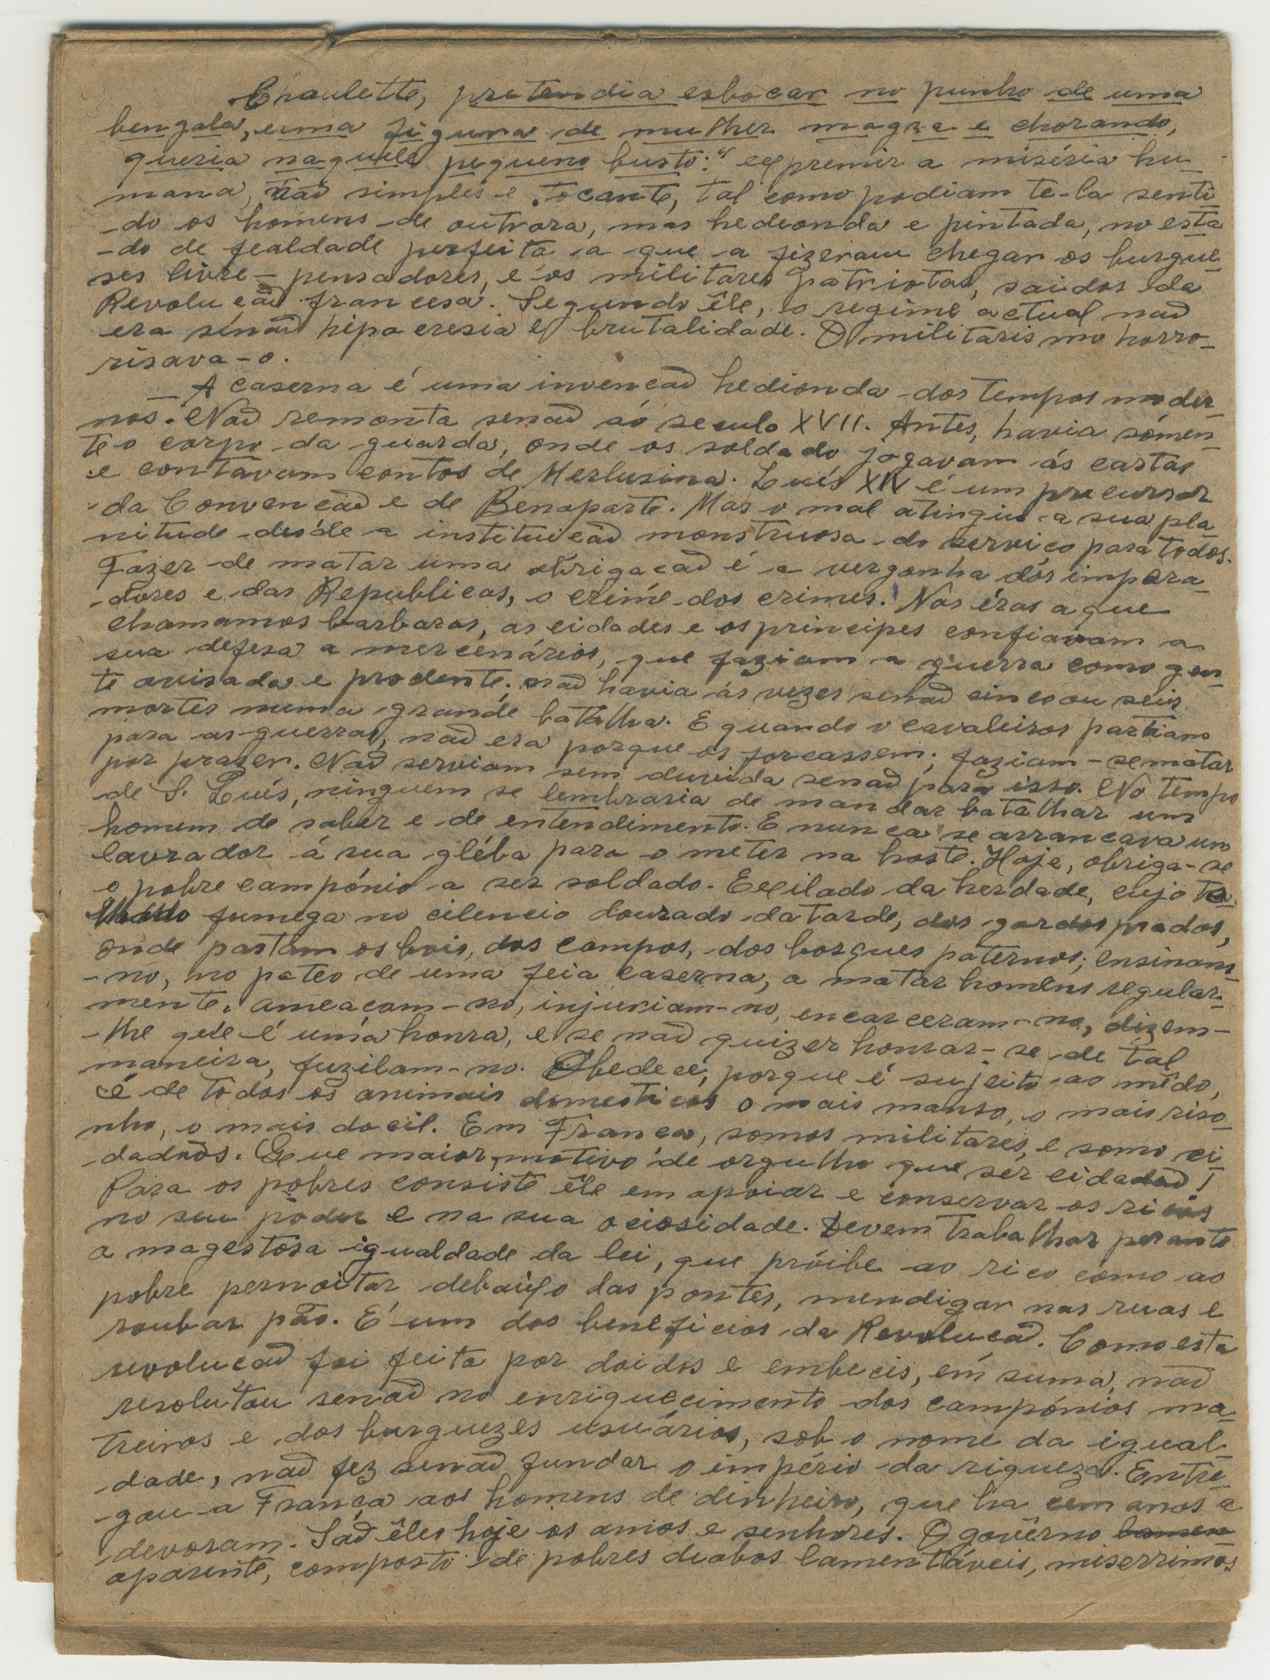 Choulette, pretendia esboçar no punho de uma
bengala, uma figura de mulher magra e chorando,
queria naquele pequeno busto: "exprimir a miséria hu-
mana, não simples e tocante, tal como podiam te-la senti-
-do os homens de outrora, mas hedionda e pintada, no esta
-do de fealdade perfeita a que a fizeram chegar os burgue-
ses livre-pensadores, e os militares patriotas, saidos da
Revolução francesa. Segundo êle, o regime actual não
era sinão hipocresia e brutalidade. O militarismo horro-
risava-o.
— A caserna é uma invenção hedionda dos tempos moder-
nos. Não remonta senão aó seculo XVII. Antes, havia sómen-
te o corpo da guarda, onde os soldado jogavam ás cartas
e contavam contos de Merlusina. Luís XIV é um precursor
da Convenção e de Bonaparte. Mas o mal atingiu a sua pla
nitude desde a instituição monstruosa do serviço para todos.
Fazer de matar uma obrigação é a vergonha dos impera-
-dores e das Republicas, o crime dos crimes. Nas éras a que
chamamos barbaras, as cidades e os principes confiavam a
sua defesa a mercenários, que faziam a guerra como gen-
te avisada e prodente; não havia ás vezes senão cinco ou seis
mortes numa grande batalha. E quando o cavaleiros partiam
para as guerras, não era porque os forcassem; faziam-se matar
por prazer. Não serviam sem duvida senão para isso. No tempo
de S. Luís, ninguem se lembraria de mandar batalhar um
homem de saber e de entendimento. E nunca se arrancava um
lavrador á sua gléba para o meter na hoste. Hoje, obriga-se
o pobre campónio a ser soldado. Exilado da herdade, cujo te
fumega no cilencio dourado da tarde, dos gordos prados,
onde pastam os bois, dos campos, dos bosques paternos; ensinam
-no, no pateo de uma feia caserna, a matar homens regular-
mente, ameaçam-no, injuriam-no, encarceram-no, dizem-
-lhe que é uma honra, e se não quizer honrar-se de tal
maneira, fuzilam-no. Obedece, porque é sujeito ao mêdo,
é de todos os animais domesticos o mais manso, o mais riso-
nho, o mais docil. Em França, somos militares, e somo ci
dadãos. Que maior motivo de orgulho que ser cidadão!
Para os pobres consiste êle em apoiar e conservar os ricos
no seu poder e na sua ociosidade. Devem trabalhar perante
a magestosa igualdade da lei, que próibe ao rico como ao
pobre pernoitar debaixo das pontes, mendigar nas ruas e
roubar pão. É um dos beneficios da Revolução. Como esta
revolução foi feita por doidos e embecis, em suma, não
resolutou senão no enriquecimento dos campónios ma-
treiros e dos burguezes usuários, sob o nome da igual-
dade, não fez senão fundar o império da riqueza. Entre-
gou a França aos homens de dinheiro, que ha cem anos a
devoram. São êles hoje os amos e senhores. O govêrno
aparente, composto de pobres diabos lamentáveis, miserrimos